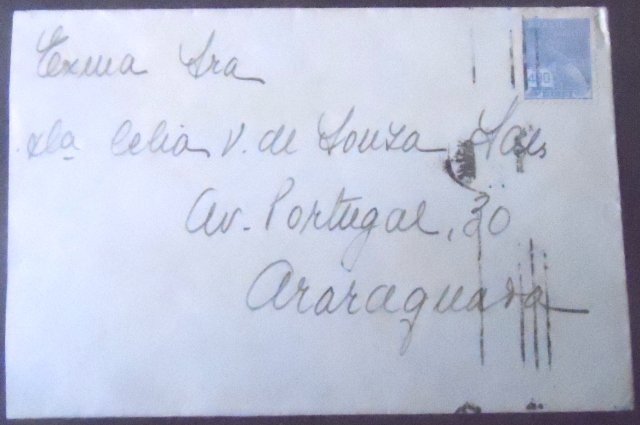 Exma Sra
Da Celia V. de Souza Sáes
Av. Portugal, 30
Araraquara
400